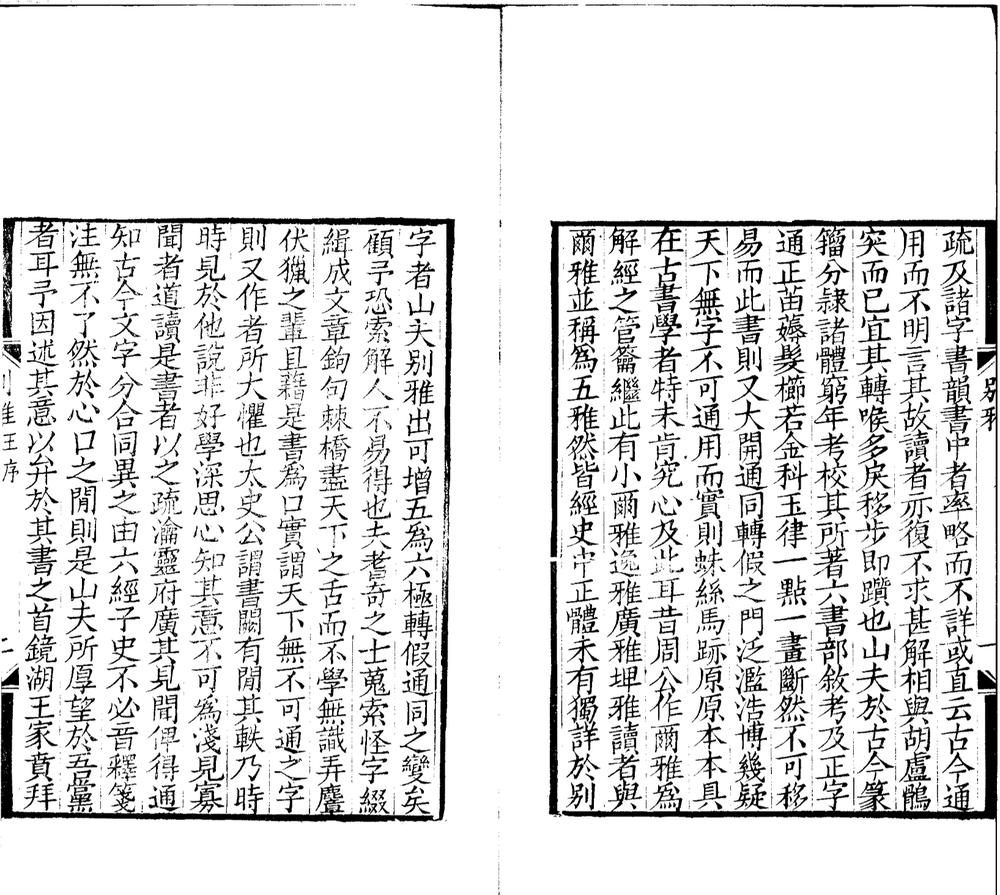 疏及諸字書韻書中者率略而不詳或直云古今通
用而不明言其故讀者亦復不求甚解相與胡盧鶻
突而已宜其轉喉多戾移步即躓也山夫於古今篆
籀分隷諸體窮年考校其所著六書部敘考及正字
通正苗薅髮櫛若金科玉律一點一畫斷然不可移
易而此書則又大開通同轉假之門泛濫浩博幾疑
天下無字不可通用而實則蛛絲馬跡原原本本具
在古書學者特未肯究心及此耳昔周公作爾雅爲
解經之管籥繼此有小爾雅逸雅廣雅埤雅讀者與
爾雅並稱爲五雅然皆經史中正體未有獨詳於別
別雅
一
字者山夫別雅出可增五爲六極轉假通同之變矣
顧予恐索解人不易得也夫耆奇之士蒐索怪字綴
緝成文章鉤句棘橋盡天下之舌而不學無識弄麞
伏獵之輩且藉是書爲口實謂天下無不可通之字
則又作者所大懼也太史公謂書闕有閒其軼乃時
時見於他說非好學深思心知其意不可為淺見寡
聞者道讀是書者以之疏瀹靈府廣其見聞俾得通
知古今文字分合同異之由六經子史不必音釋箋
注無不了然於心口之閒則是山夫所厚望於吾黨
者耳予因述其意以弁於其書之首鏡湖王家賁拜
別雅王序
二